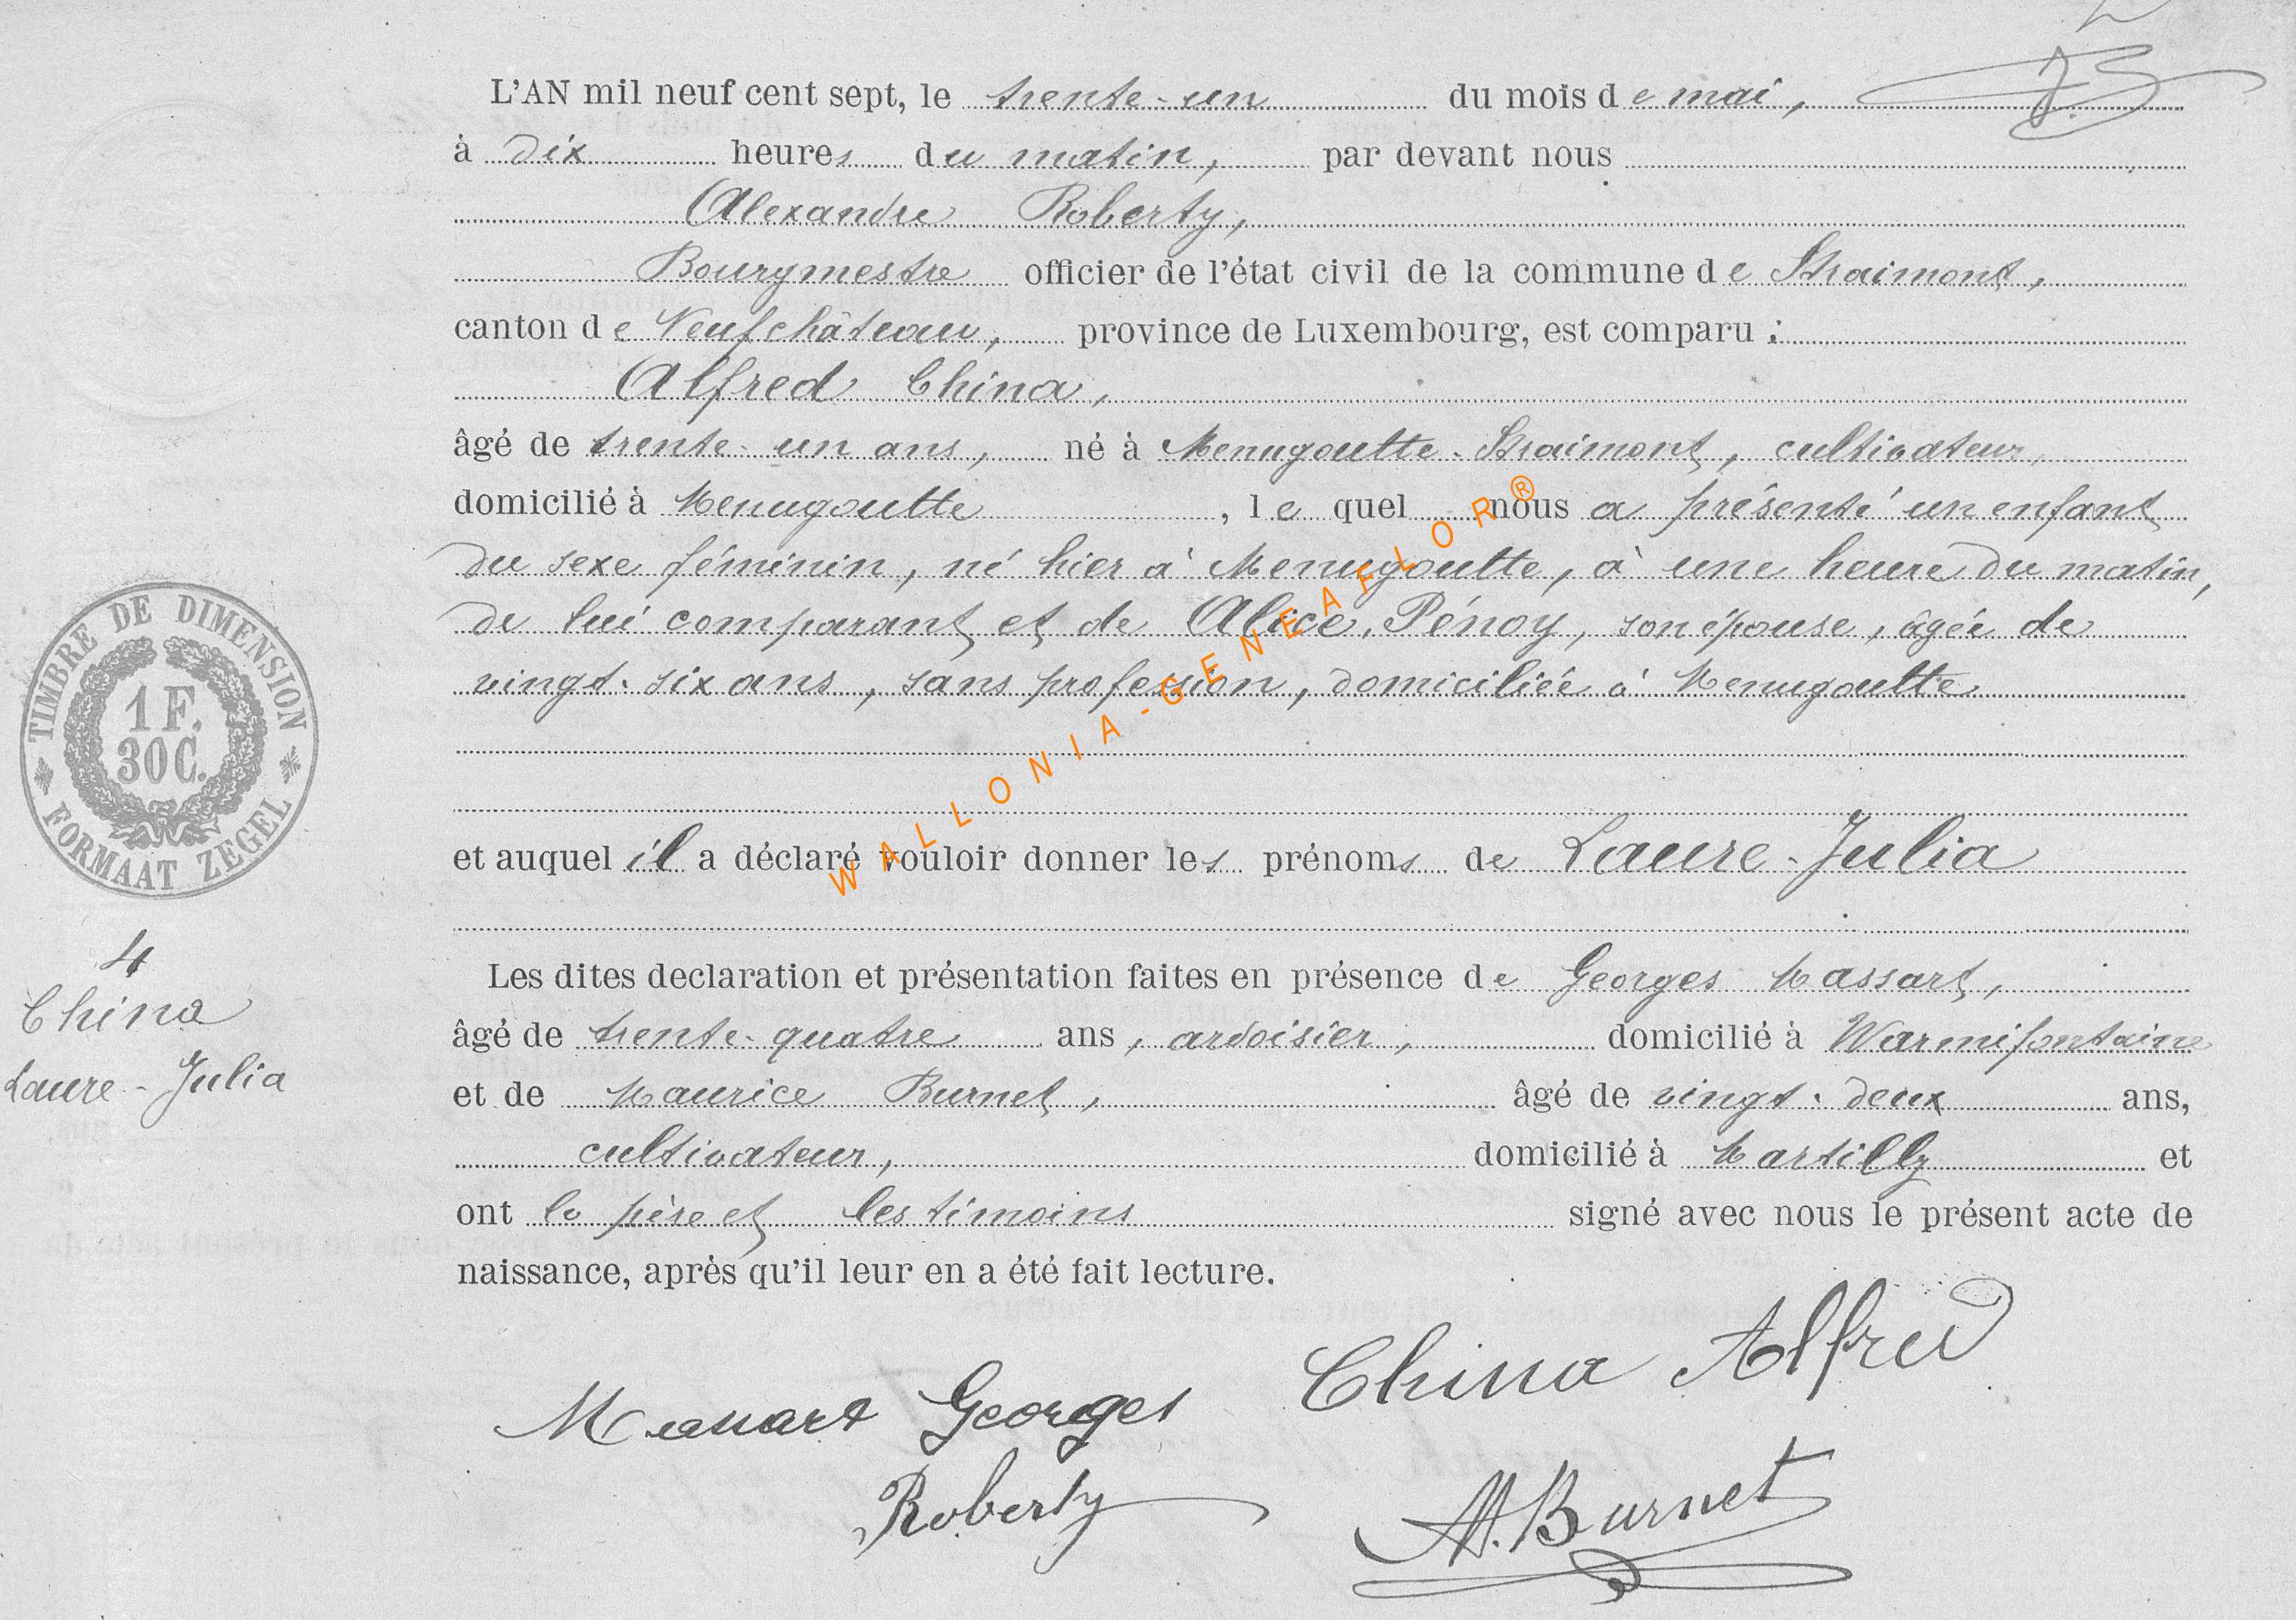 L'AN mil neuf cent sept, le trente-un du mois de mai,
à dix heures du matin, par devant nous
Alexandre Roberty,
Bourgmestre officier de l'état civil de la commune de Straimont,
canton de Neufchâteau, province de Luxembourg, est comparu :
Alfred China,
âgé de trente-un ans, né à Menugoutte-Straimont, cultivateur,
domicilié à Menugoutte, le quel nous a présenté un enfant
du sexe féminin, né hier à Menugoutte, à une heure du matin,
de lui comparant et de Alice Pénoy, son épouse, âgée de
vingt-six ans, sans profession, domiciliée à Menugoutte
et auquel il a déclaré vouloir donner les prénoms de Laure-Julia
Les dites declaration et présentation faites en présence de Georges Massart,
âgé de trente-quatre ans, ardoisier, domicilié à Warmifontaine
et de Maurice Burnet, âgé de vingt-deux ans,
cultivateur, domicilié à Martilly et
ont le père et les témoins signé avec nous le présent acte de
naissance, après qu'il leur en a été fait lecture.
China Alfred
Massart Georges
Roberty
M. Burnet
TIMBRE DE DIMENSION
1 F.
30 C.
FORMAAT ZEGEL
4
China
Laure-Julia
WALLONIA-GENEAFLOR®